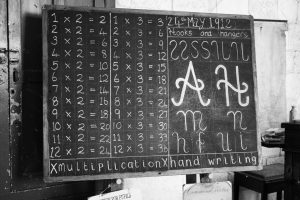 1 × 2 = 2 1 × 3 = 3
2 × 2 = 4 2 × 3 = 6
3 × 2 = 6 3 × 3 = 9
4 × 2 = 8 4 × 3 = 12
5 × 2 = 10 5 × 3 = 15
6 × 2 = 12 6 × 3 = 18
7 × 2 = 14 7 × 3 = 21
8 × 2 = 16 8 × 3 = 24
9 × 2 = 18 9 × 3 = 27
10 × 2 = 20 10 × 3 = 30
11 × 2 = 22 11 × 3 = 33
12 × 2 = 24 12 × 3 = 36
24th May 1912
Hooks and hangers
A H
m n
x multiplication x hand writing